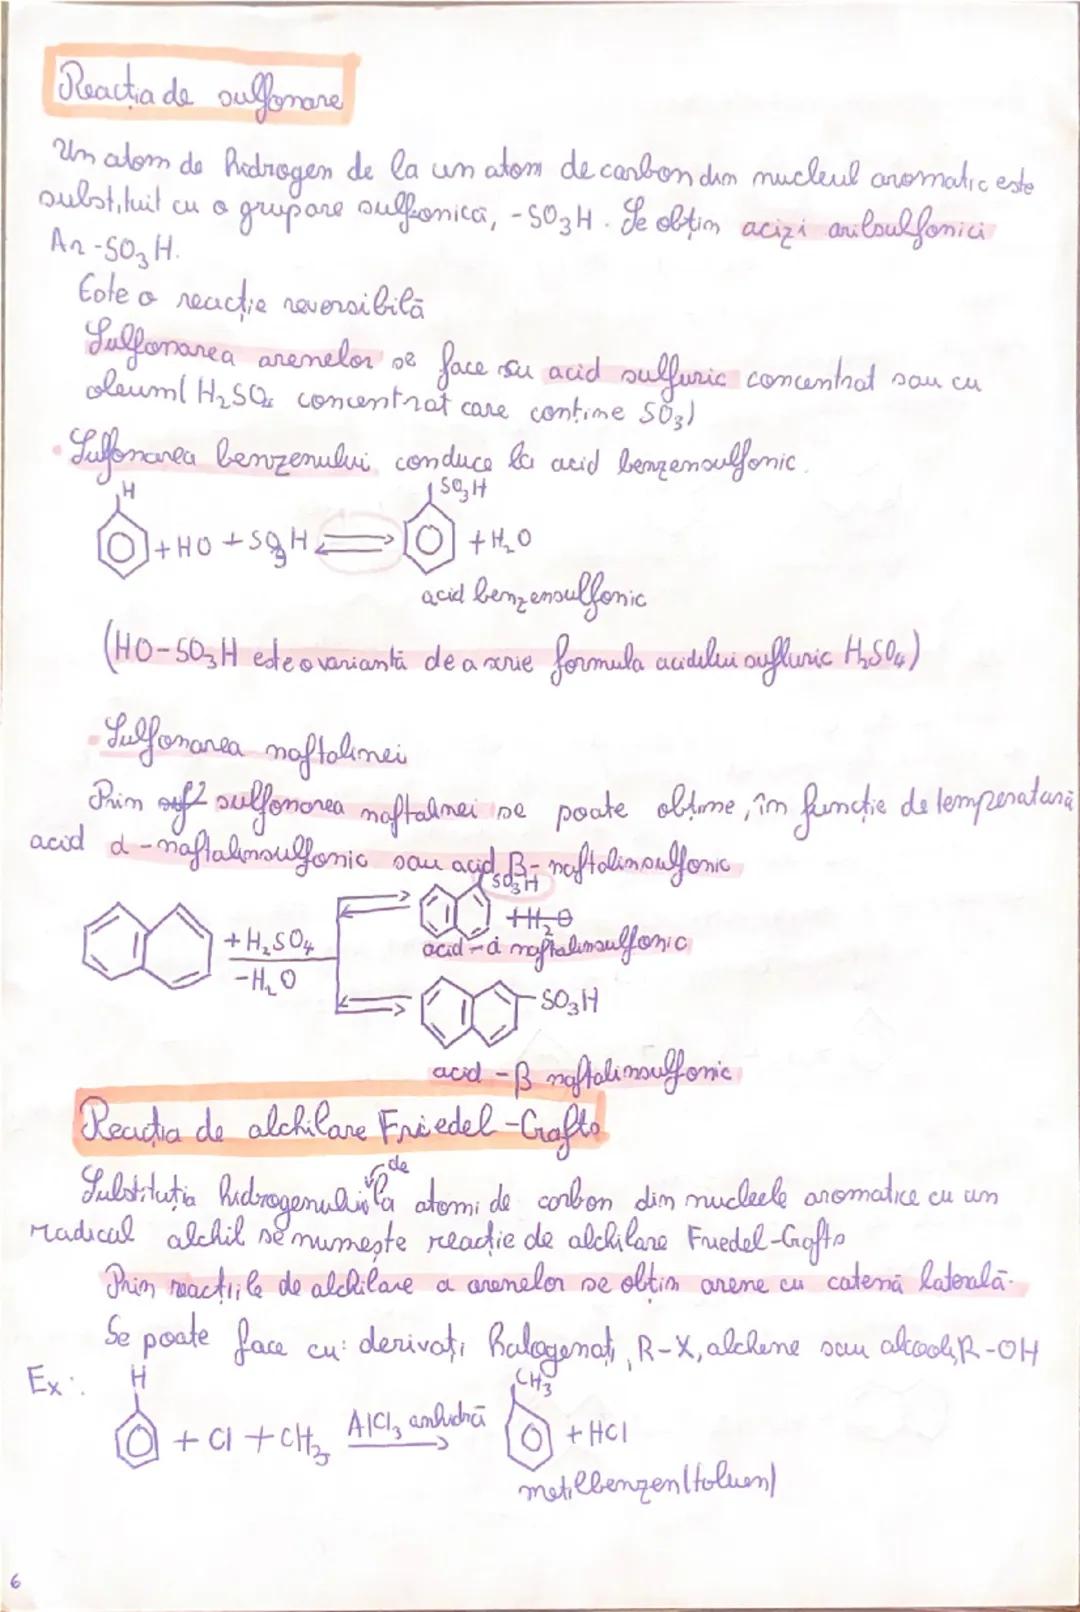 Reacția de sulfonare
Un atom de hidrogen de la un atom de carbon din nucleul aromatic este
substituit cu o grupare sulfonică, -SO3H. Se obțin acizi arilsulfonici
Ar-SO3H.
Este o reacție reversibilă
Sulfonarea arenelor se face cu acid sulfuric concentrat sau cu
oleum( H2SO4 concentrat care conține SO3)
Sulfonarea benzenului conduce la acid benzensulfonic.
H SO3H
+HO +SO3H ⇌ +H2O
acid benzensulfonic
(HO-SO3H este o variantă de a scrie formula acidului sulfuric H2SO4)
Sulfonarea naftalinei
Prin sulfonarea naftalinei se poate obține, în funcție de temperatură
acid α-naftalinsulfonic sau acid β-naftalinsulfonic
SO3H
+H2SO4 +H2O
-H2O acid-α naftalinsulfonic
-SO3H
acid -β naftalinsulfonic
Reacția de alchilare Friedel-Crafts
de
Substituția hidrogenului la atomi de carbon din nucleele aromatice cu un
radical alchil se numește reacție de alchilare Friedel-Crafts
Prin reacțiile de alchilare a arenelor se obțin arene cu catenă laterală.
Se poate face cu: derivați halogenați, R-X, alchene sau alcooli, R-OH
Ex: H CH3
+ Cl + CH3 AlCl3 anhidră → + HCl
metilbenzen(toluen)
6